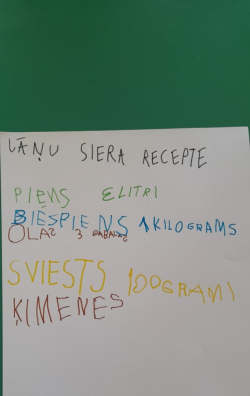 JĀŅU SIERA RECEPTE
PIENS ELITRI
BIESPIENS 1KILOGRAMS
OLAS 3 GABALAS
SVIESTS 100GRAMI
ĶIMENES